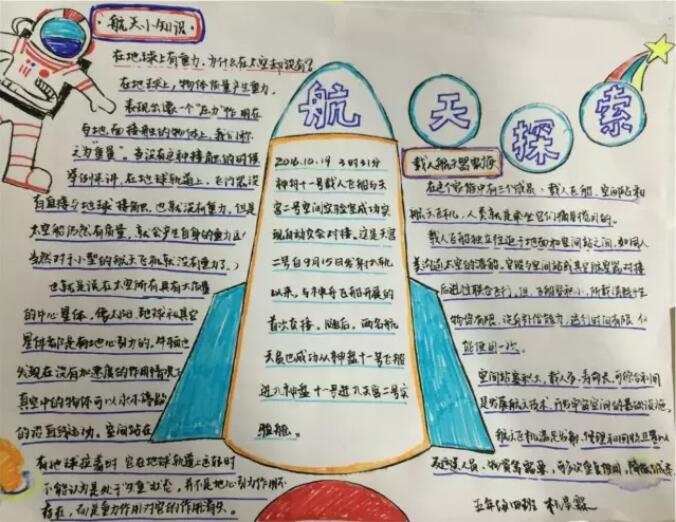 航天小知识
在地球上有重力,为什么在太空却没有?
在地球上,物体质量产生重力,
表现出像一个“压力”作用在
与地面接触的物体上,我们称
之为“重量”。当没有这种接触的时候
举例来讲,在地球轨道上,飞行器没
有直接与地球接触,也就没有重力,但是
太空船仍然有质量,就会产生自身的重力
当然对于小型的航天飞机就没有重力了。)
也就是说在太空所有具有大质量
的中心星体,像太阳,地球和其它
星体都是有地心引力的。
发现在没有加速度的作用情况下
真空中的物体可以永不停歇
的沿直线运动。空间站在
有地球拉着时 它在地球轨道上运转时
不能认为是处于“失重”状态,并不是地心引力作用不
存在,而是重力作用对它的作用消失。
航天探索
2016.10.19 3时31分
神舟十一号载人飞船与天
宫二号空间实验室成功实
现自动交会对接。这是天宫
二号自9月15日发射入轨
以来,与神舟飞船开展的
首次交接。随后。两名航
天员也成功从神舟十一号飞船
进入神舟十一号进入天宫二号实
验舱。
载人航天器家族
在这个家族中有三个成员:载人飞船,空间站和
航天飞机,人类就是乘坐它们
载人飞船独立往返于地面和空间站之间,如同人
类沟通太空的渡船,它能与空间站或其它航天器对接
后进行联合飞行。但,飞船容积小,所载消耗性
物资有限,没有补给能力,运行时间有限,仅
能使用一次。
空间站容积大,载人多,寿命长,可综合利用
是发展航天技术,开发宇宙空间的基础设施。
航天飞机
人员,物资等需要,可多次重复使用,降低
五年级四班